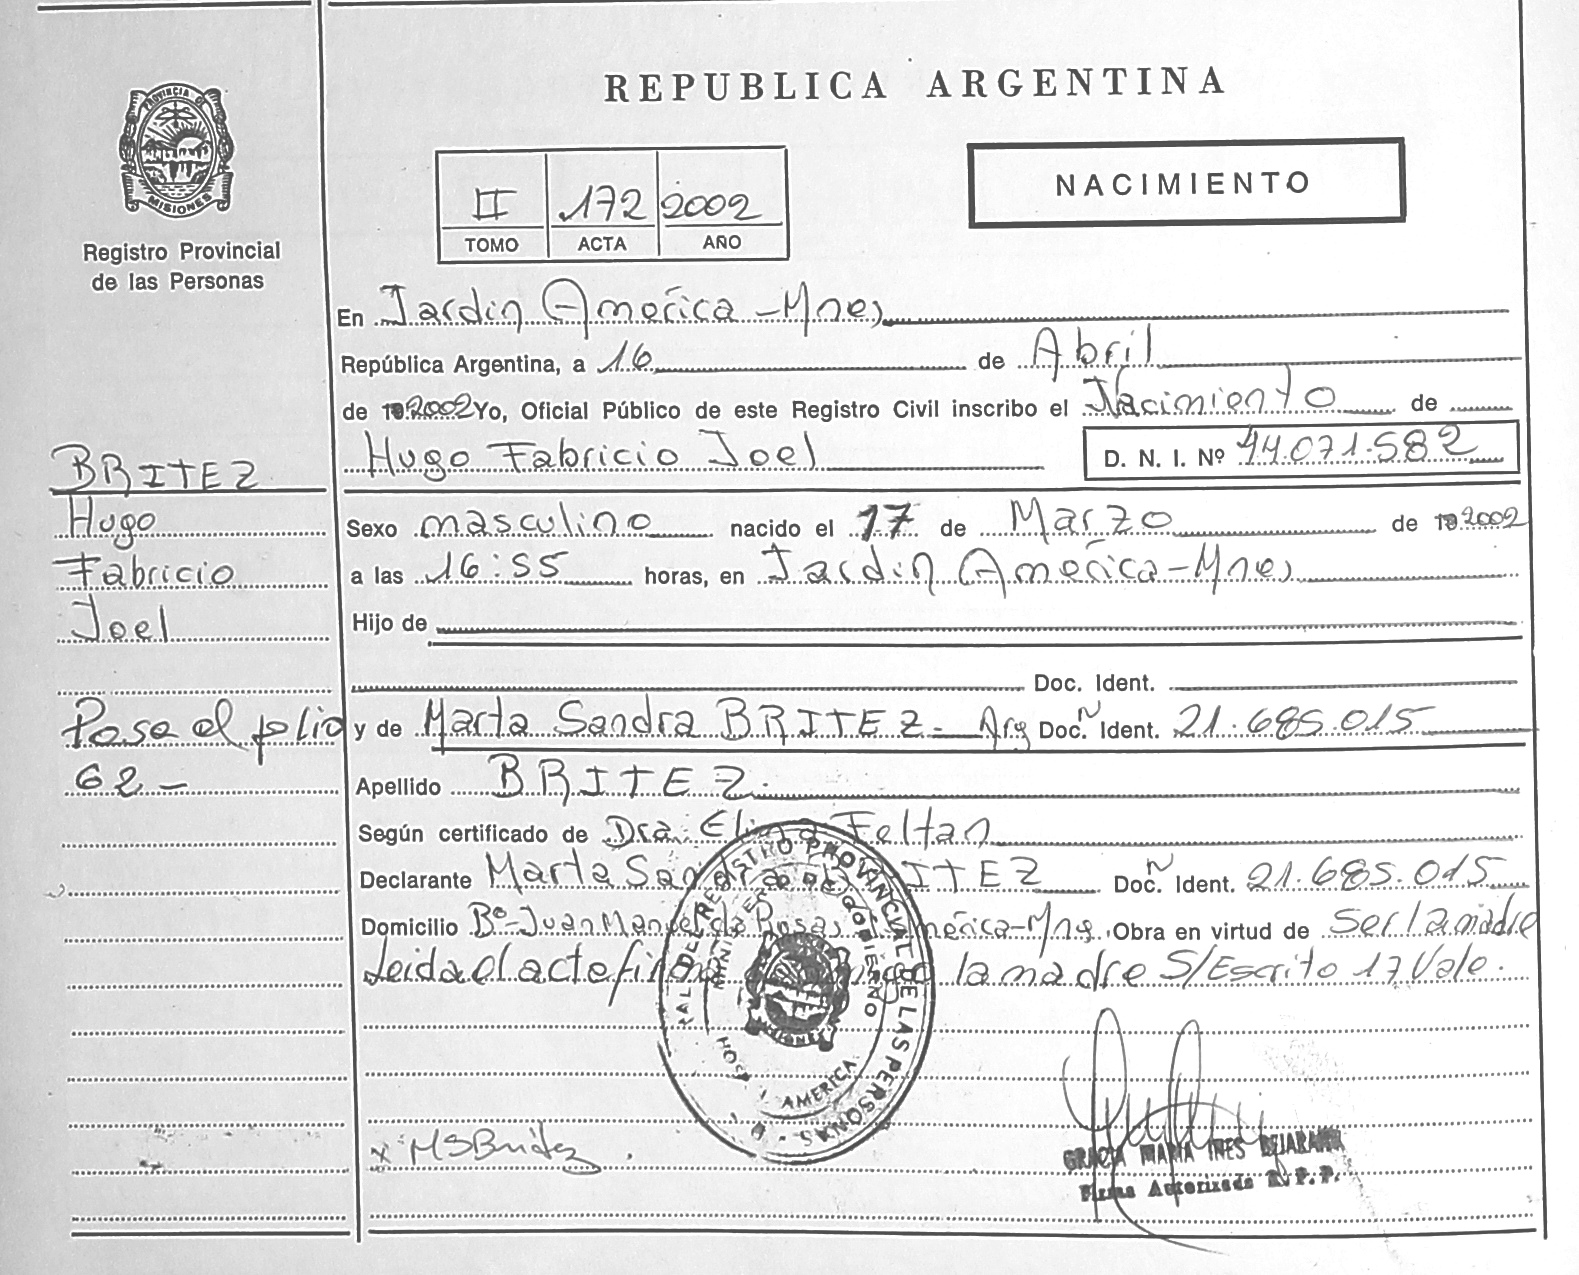 REPUBLICA ARGENTINA
PROVINCIA D
MISIONES
Registro Provincial
de las Personas
II 172 2002
TOMO ACTA AÑO
NACIMIENTO
En Jardin America - Mnes
República Argentina, a 16 de Abril
de 19 2002 Yo, Oficial Público de este Registro Civil inscribo el Nacimiento de
Hugo Fabricio Joel D. N. I. Nº 44.071.582
BRITEZ
Hugo
Fabricio
Joel
Pasa al folio
62 -
Sexo masculino nacido el 17 de Marzo de 19 2002
a las 16:55 horas, en Jardin America - Mnes
Hijo de
Doc. Ident.
y de Marta Sandra BRITEZ - Arg Doc. N Ident. 21.685.015
Apellido BRITEZ.
Según certificado de Dra. Elina Feltan
Declarante Marta Sandra BRITEZ Doc. N Ident. 21.685.015
Domicilio Bº Juan Manuel de Rosas, J. América - Mns. Obra en virtud de Ser la madre
Leida el acta firma conmigo la madre S/Escrito 17. Vale.
REGISTRO PROVINCIAL DE LAS PERSONAS
MINISTERIO DE GOBIERNO
HOSP. J. AMERICA
x MSBritez
GRACIA MARIA INES BEJARANO
Firma Autorizada R. P. P.